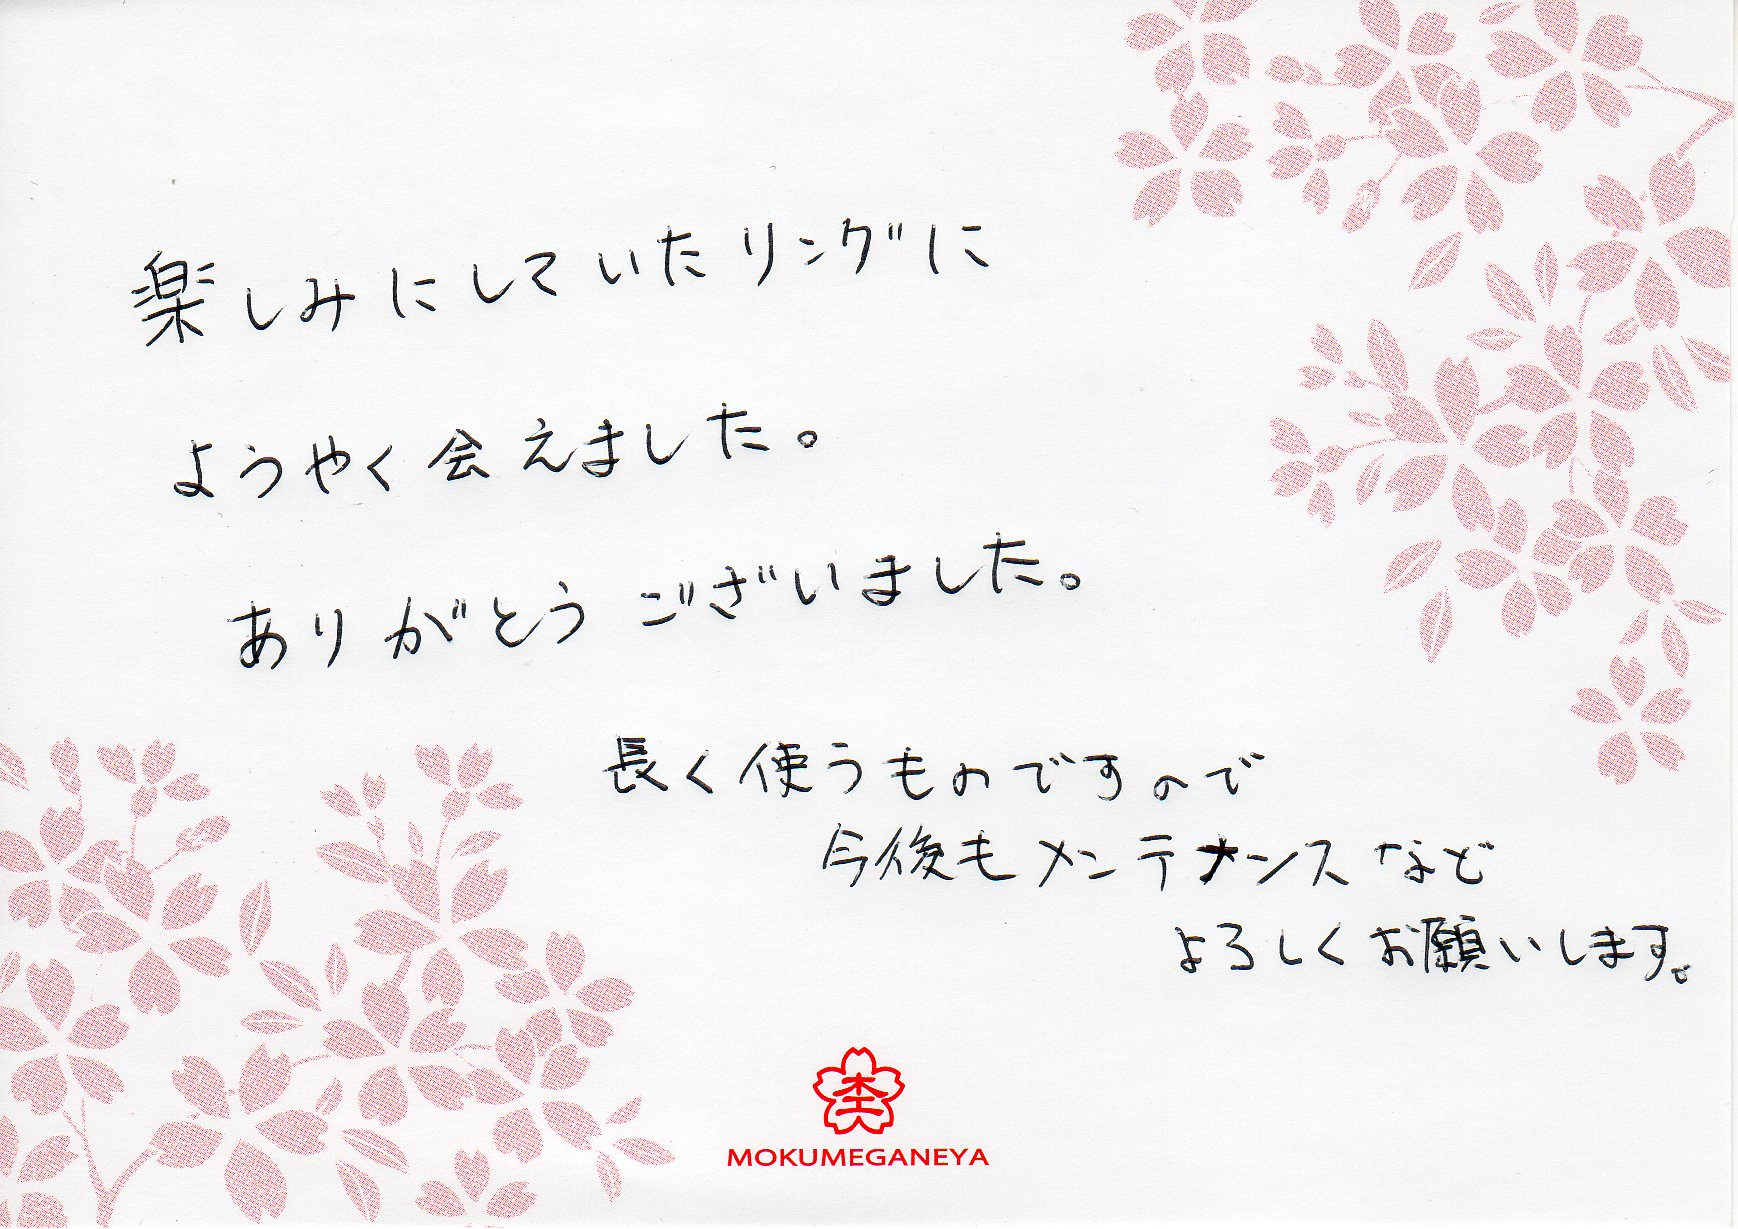 楽しみにしていたリングに
ようやく会えました。
ありがとうございました。
長く使うものですので
今後もメンテナンスなど
よろしくお願いします。
MOKUMEGANEYA